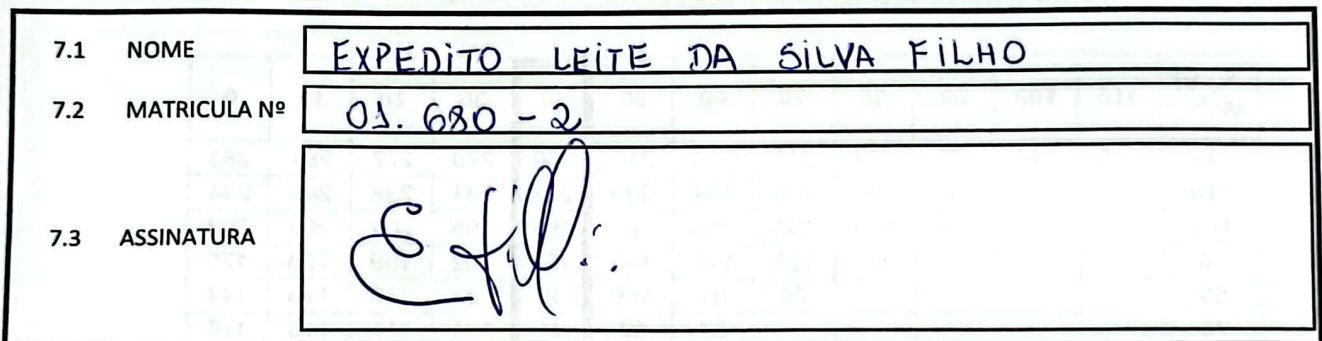 7.1 NOME EXPEDITO LEITE DA SILVA FILHO
7.2 MATRICULA Nº 01.680-2
7.3 ASSINATURA